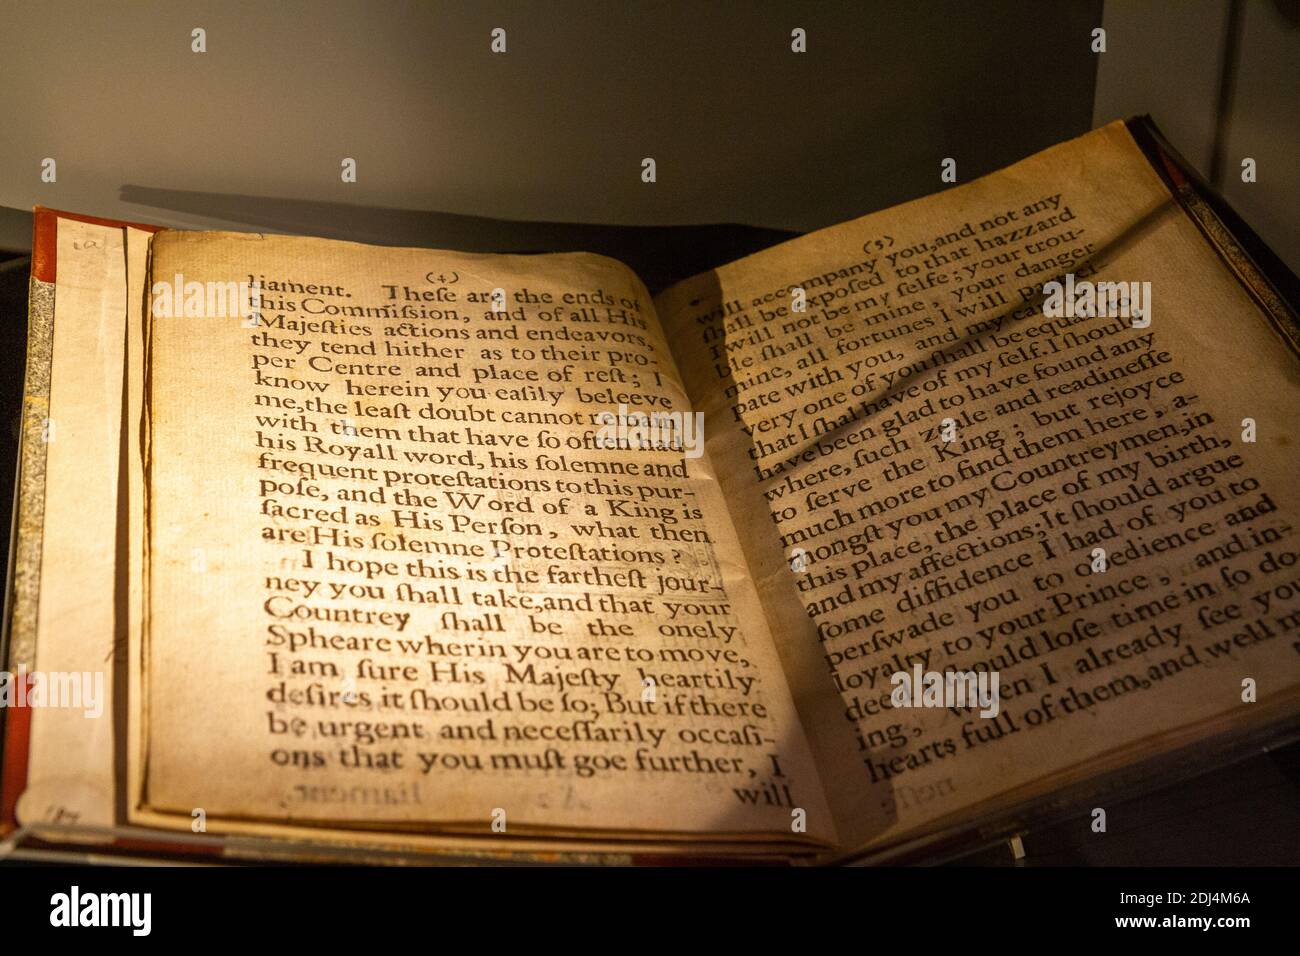 (4)
liament. Theſe are the ends of
this Commiſſion, and of all His
Majeſties actions and endeavors,
they tend hither as to their pro-
per Centre and place of reſt; I
know herein you eaſily beleeve
me, the leaſt doubt cannot remain
with them that have ſo often had
his Royall word, his ſolemne and
frequent proteſtations to this pur-
poſe, and the Word of a King is
ſacred as His Perſon, what then
are His ſolemne Proteſtations?
I hope this is the fartheſt jour-
ney you ſhall take, and that your
Countrey ſhall be the onely
Spheare wherin you are to move,
I am ſure His Majeſty heartily
deſires it ſhould be ſo; But if there
be urgent and neceſſarily occaſi-
ons that you muſt goe further, I
will
(5)
will accompany you, and not any
ſhall be expoſed to that hazzard
I will not be my ſelfe; your trou-
ble ſhall be mine, your danger
mine, all fortunes I will partici-
pate with you, and my care of e-
very one of you ſhall be equal to
that I ſhal have of my ſelf. I ſhould
have been glad to have found any
where, ſuch zeale and readineſſe
to ſerve the King; but rejoyce
much more to find them here, a-
mongſt you my Countreymen, in
this place, the place of my birth,
and my affections; It ſhould argue
ſome diffidence I had of you to
perſwade you to obedience and
loyalty to your Prince, and in-
deed, ſhould loſe time in ſo do-
ing, when I already ſee you
hearts full of them, and well
alamy
Image ID: 2DJ4M6A
www.alamy.com